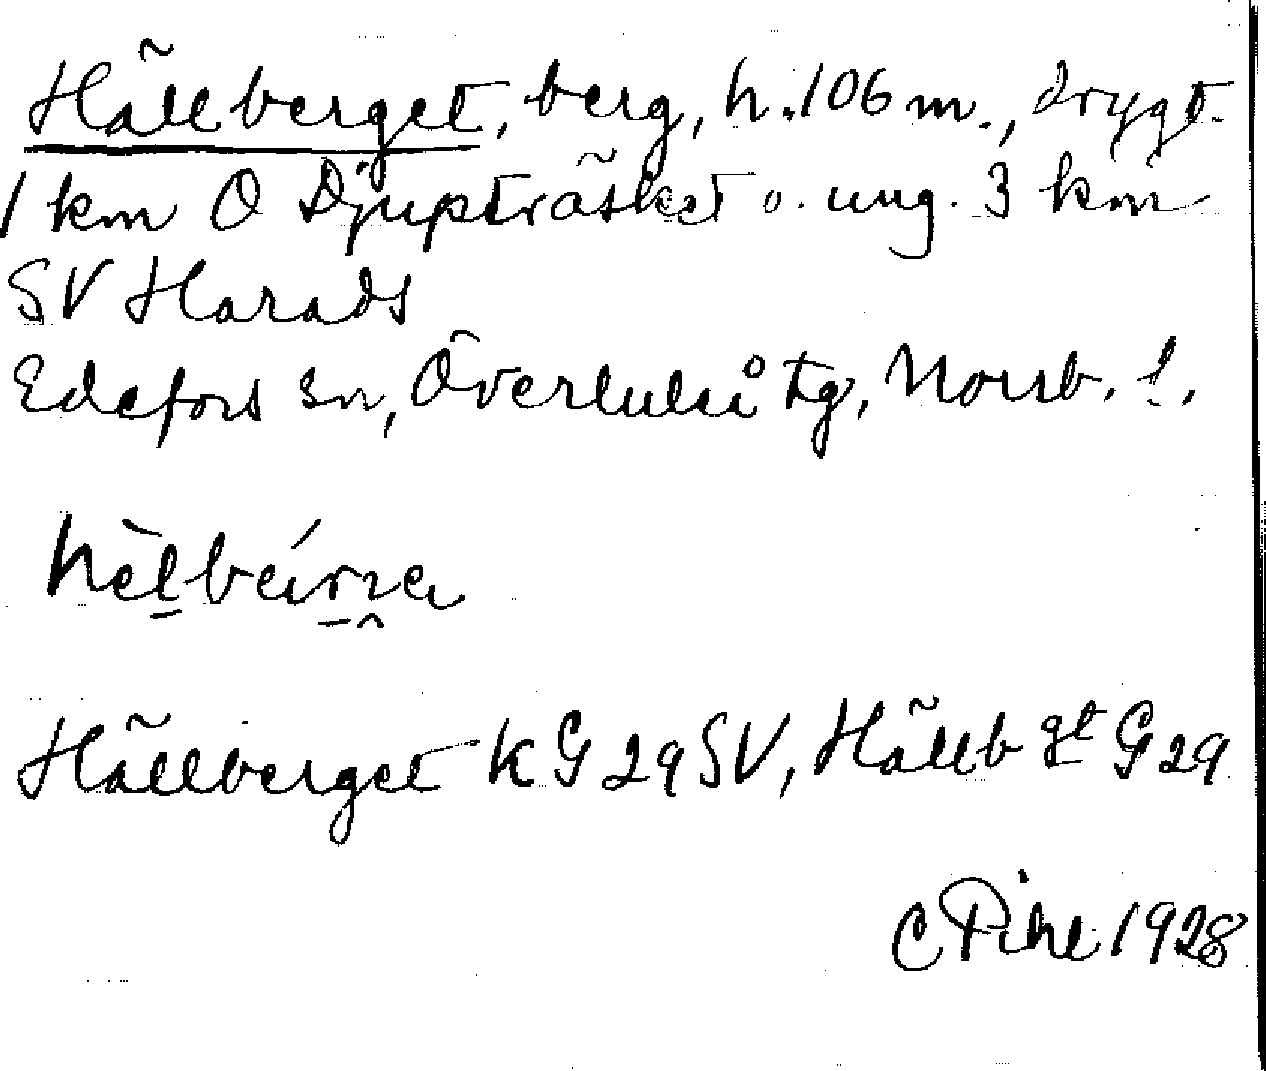 Hällberget, berg, h. 106 m., drygt
1 km O Djupträsket o. ung. 3 km
SV Harads
Edefors sn, Överluleå tg, Norrb. l.
Hällberget K G 29 SV, Hällb gt G 29
C Pihl 1928